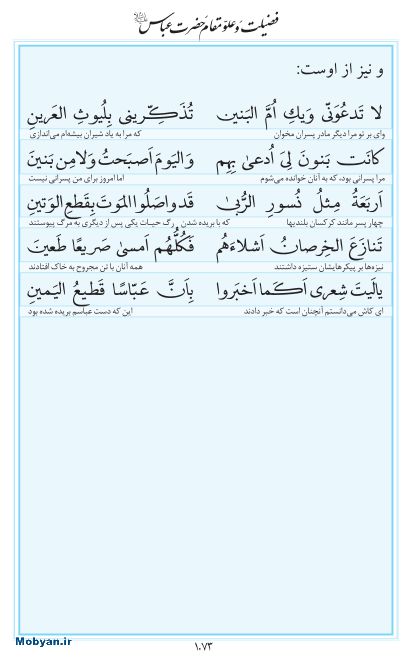 فضیلت و علوّ مقام حضرت عباس
و نیز از اوست:
لا تَدعُوَنّی وَیکِ اُمَّ البَنین تُذَکِّرینی بِلُیوثِ العَرینِ
وای بر تو مرا دیگر مادر پسران مخوان که مرا به یاد شیران بیشه‌ام می‌اندازی
کانَت بَنونَ لِیَ اُدعیٰ بِهِم وَالیَومَ اَصبَحتُ وَلا مِن بَنینَ
مرا پسرانی بود، که به آنان خوانده می‌شوم اما امروز برای من پسرانی نیست
اَربَعَةُ مِثلُ نُسورِ الرُّبیٰ قَد واصَلُوا المَوتَ بِقَطعِ الوَتینِ
چهار پسر مانند کرکسان بلندیها که با بریده شدن رگ حیات یکی پس از دیگری به مرگ پیوستند
تَنازَعَ الخِرصانُ اَشلاءَهُم فَکُلُّهُم اَمسیٰ صَریعًا طَعینَ
نیزه‌ها بر پیکرهایشان ستیزه داشتند همه آنان با تن مجروح به خاک افتادند
یالَیتَ شِعری اَکَما اَخبَروا بِاَنَّ عَبّاسًا قَطیعُ الیَمینِ
ای کاش می‌دانستم آنچنان است که خبر دادند این که دست عباسم بریده شده بود
Mobyan.ir
۱۰۷۳